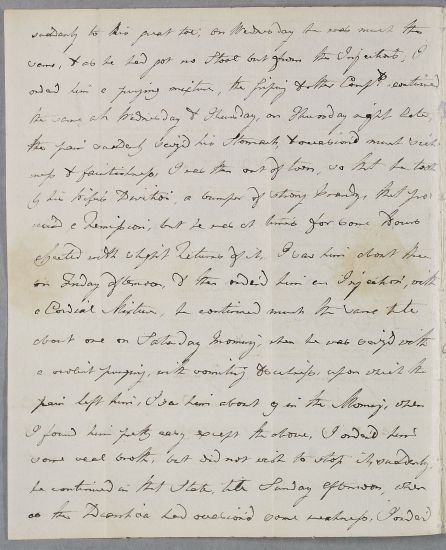 suddenly to his great toe; on Wednesday he was much the
same, & as he had got no Stool but from the Injections, I
orderd him a purging mixture, the griping & other Compts continued
the same all Wednesday & Thursday, on Thursday night late
the pain suddenly seizd his Stomach, & occasiond much sick
ness & faintishness I was then out of town, so that he took
by his Wife's Direction, a bumper of strong brandy, that pro
cured a Remission, but he was at times for some hours
affected with slight Returns of it. I saw him about three
on Friday afternoon, & then orderd him an Injection, with
a Cordial Mixture, he continued much the same till
about one on Saturday Morning, when he was seizd with
a violent purging, with vomiting & sickness upon which the
pain left him, I saw him about 9 in the Morning, when
I found him pretty easy except the above, I orderd him
some veal broth, but did not wish to stop it suddenly,
he continued in that State, till Sunday afternoon, when
as the Diarrhœa had occasiond some weakness, I orderd